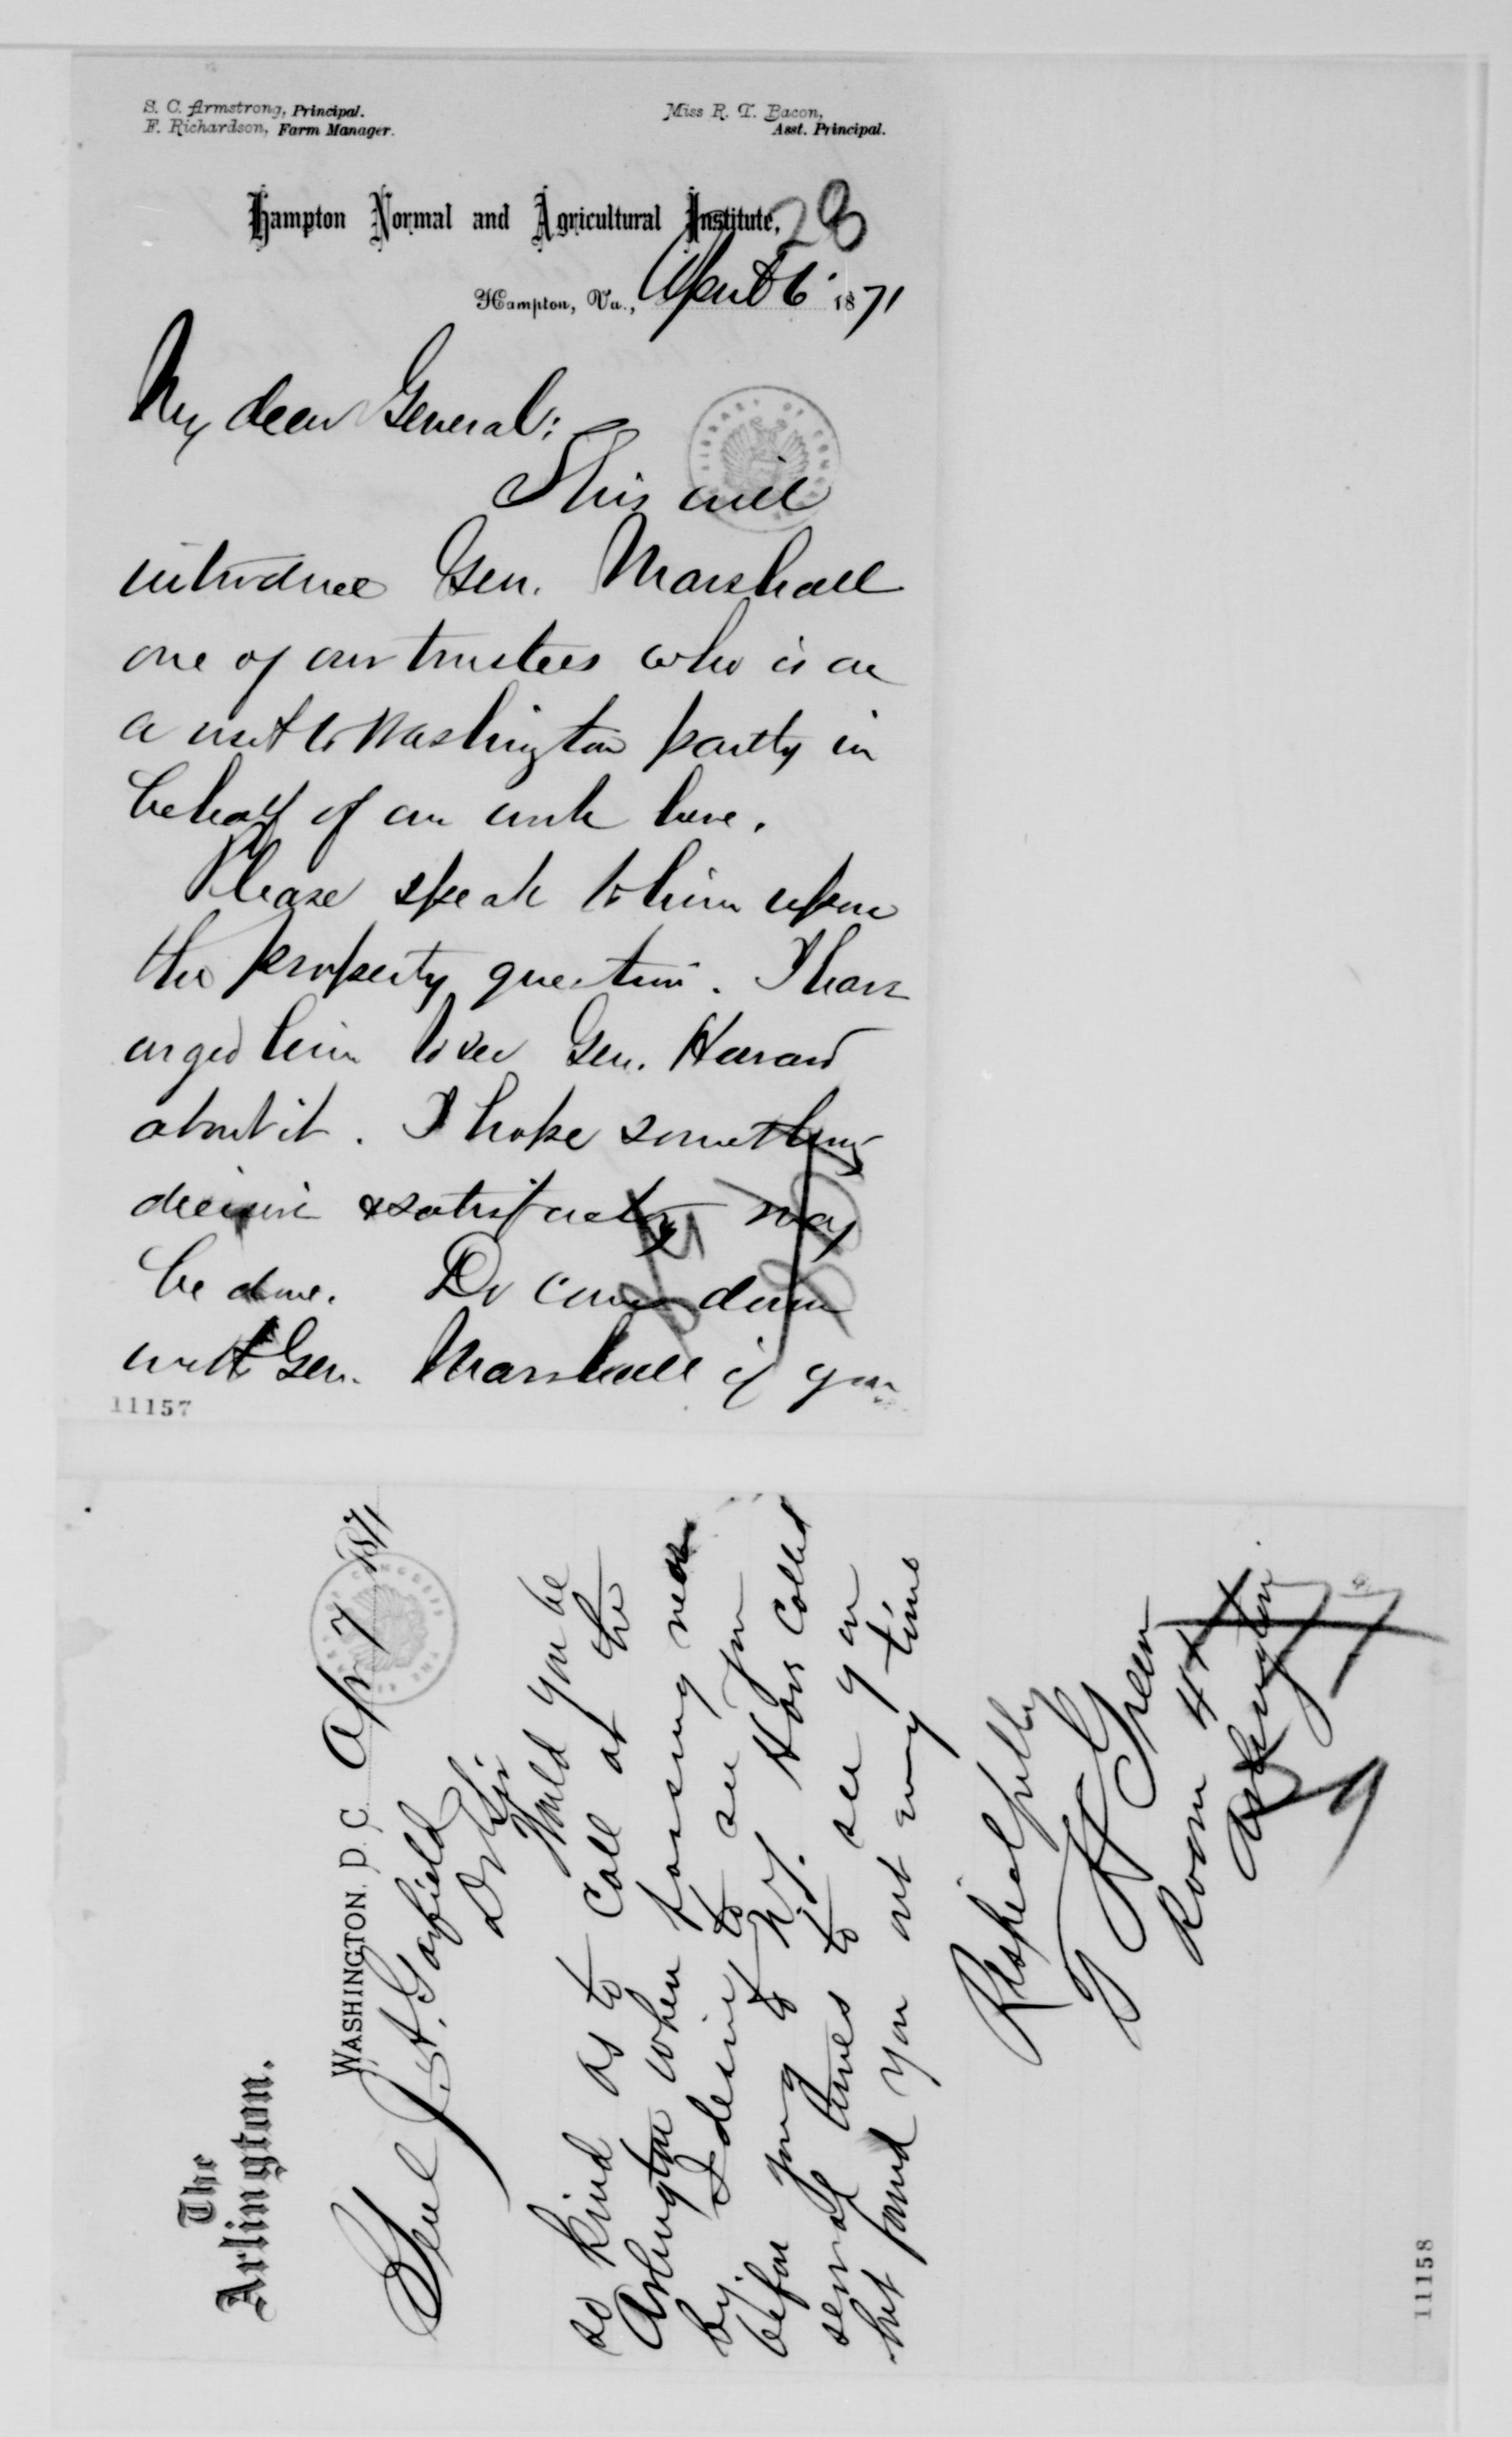 S. C. Armstrong, Principal.
F. Richardson, Farm Manager.
Miss R. T. Bacon,
Asst. Principal.
Hampton Normal and Agricultural Institute,
28
Hampton, Va., April 6 1871
My dear General:
This will
introduce Gen. Marshall
one of our trustees who is on
a visit to Washington partly in
behalf of our work here.
Please speak to him upon
the property question. I have
urged him to see Gen. Howard
about it. I hope something
decisive & satisfactory may
be done. Do come down
with Gen. Marshall if you
11157
The
Arlington.
WASHINGTON, D. C. Ap 7 1871
Genl J. A. Garfield
Dr Sir
Would you be
so kind as to call at the
Arlington when passing near
by. I desire to see you
before going to N.Y. Have called
several times to see you
but found you out every time
Respectfully
Green
Room 44
Arlington
11158